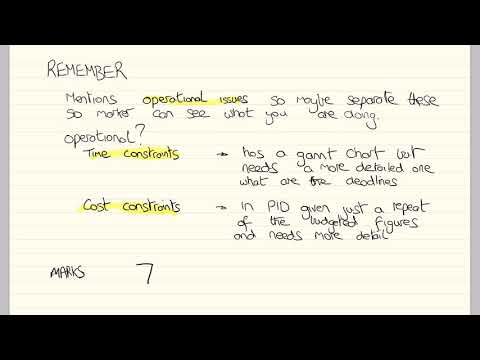 REMEMBER
Mentions operational issues so maybe separate these
so marker can see what you are doing.
operational?
Time constraints → has a gannt chart but
needs a more detailed one
what are the deadlines
Cost constraints → in PID given just a repeat
of the budgeted figures
and needs more detail
MARKS 7